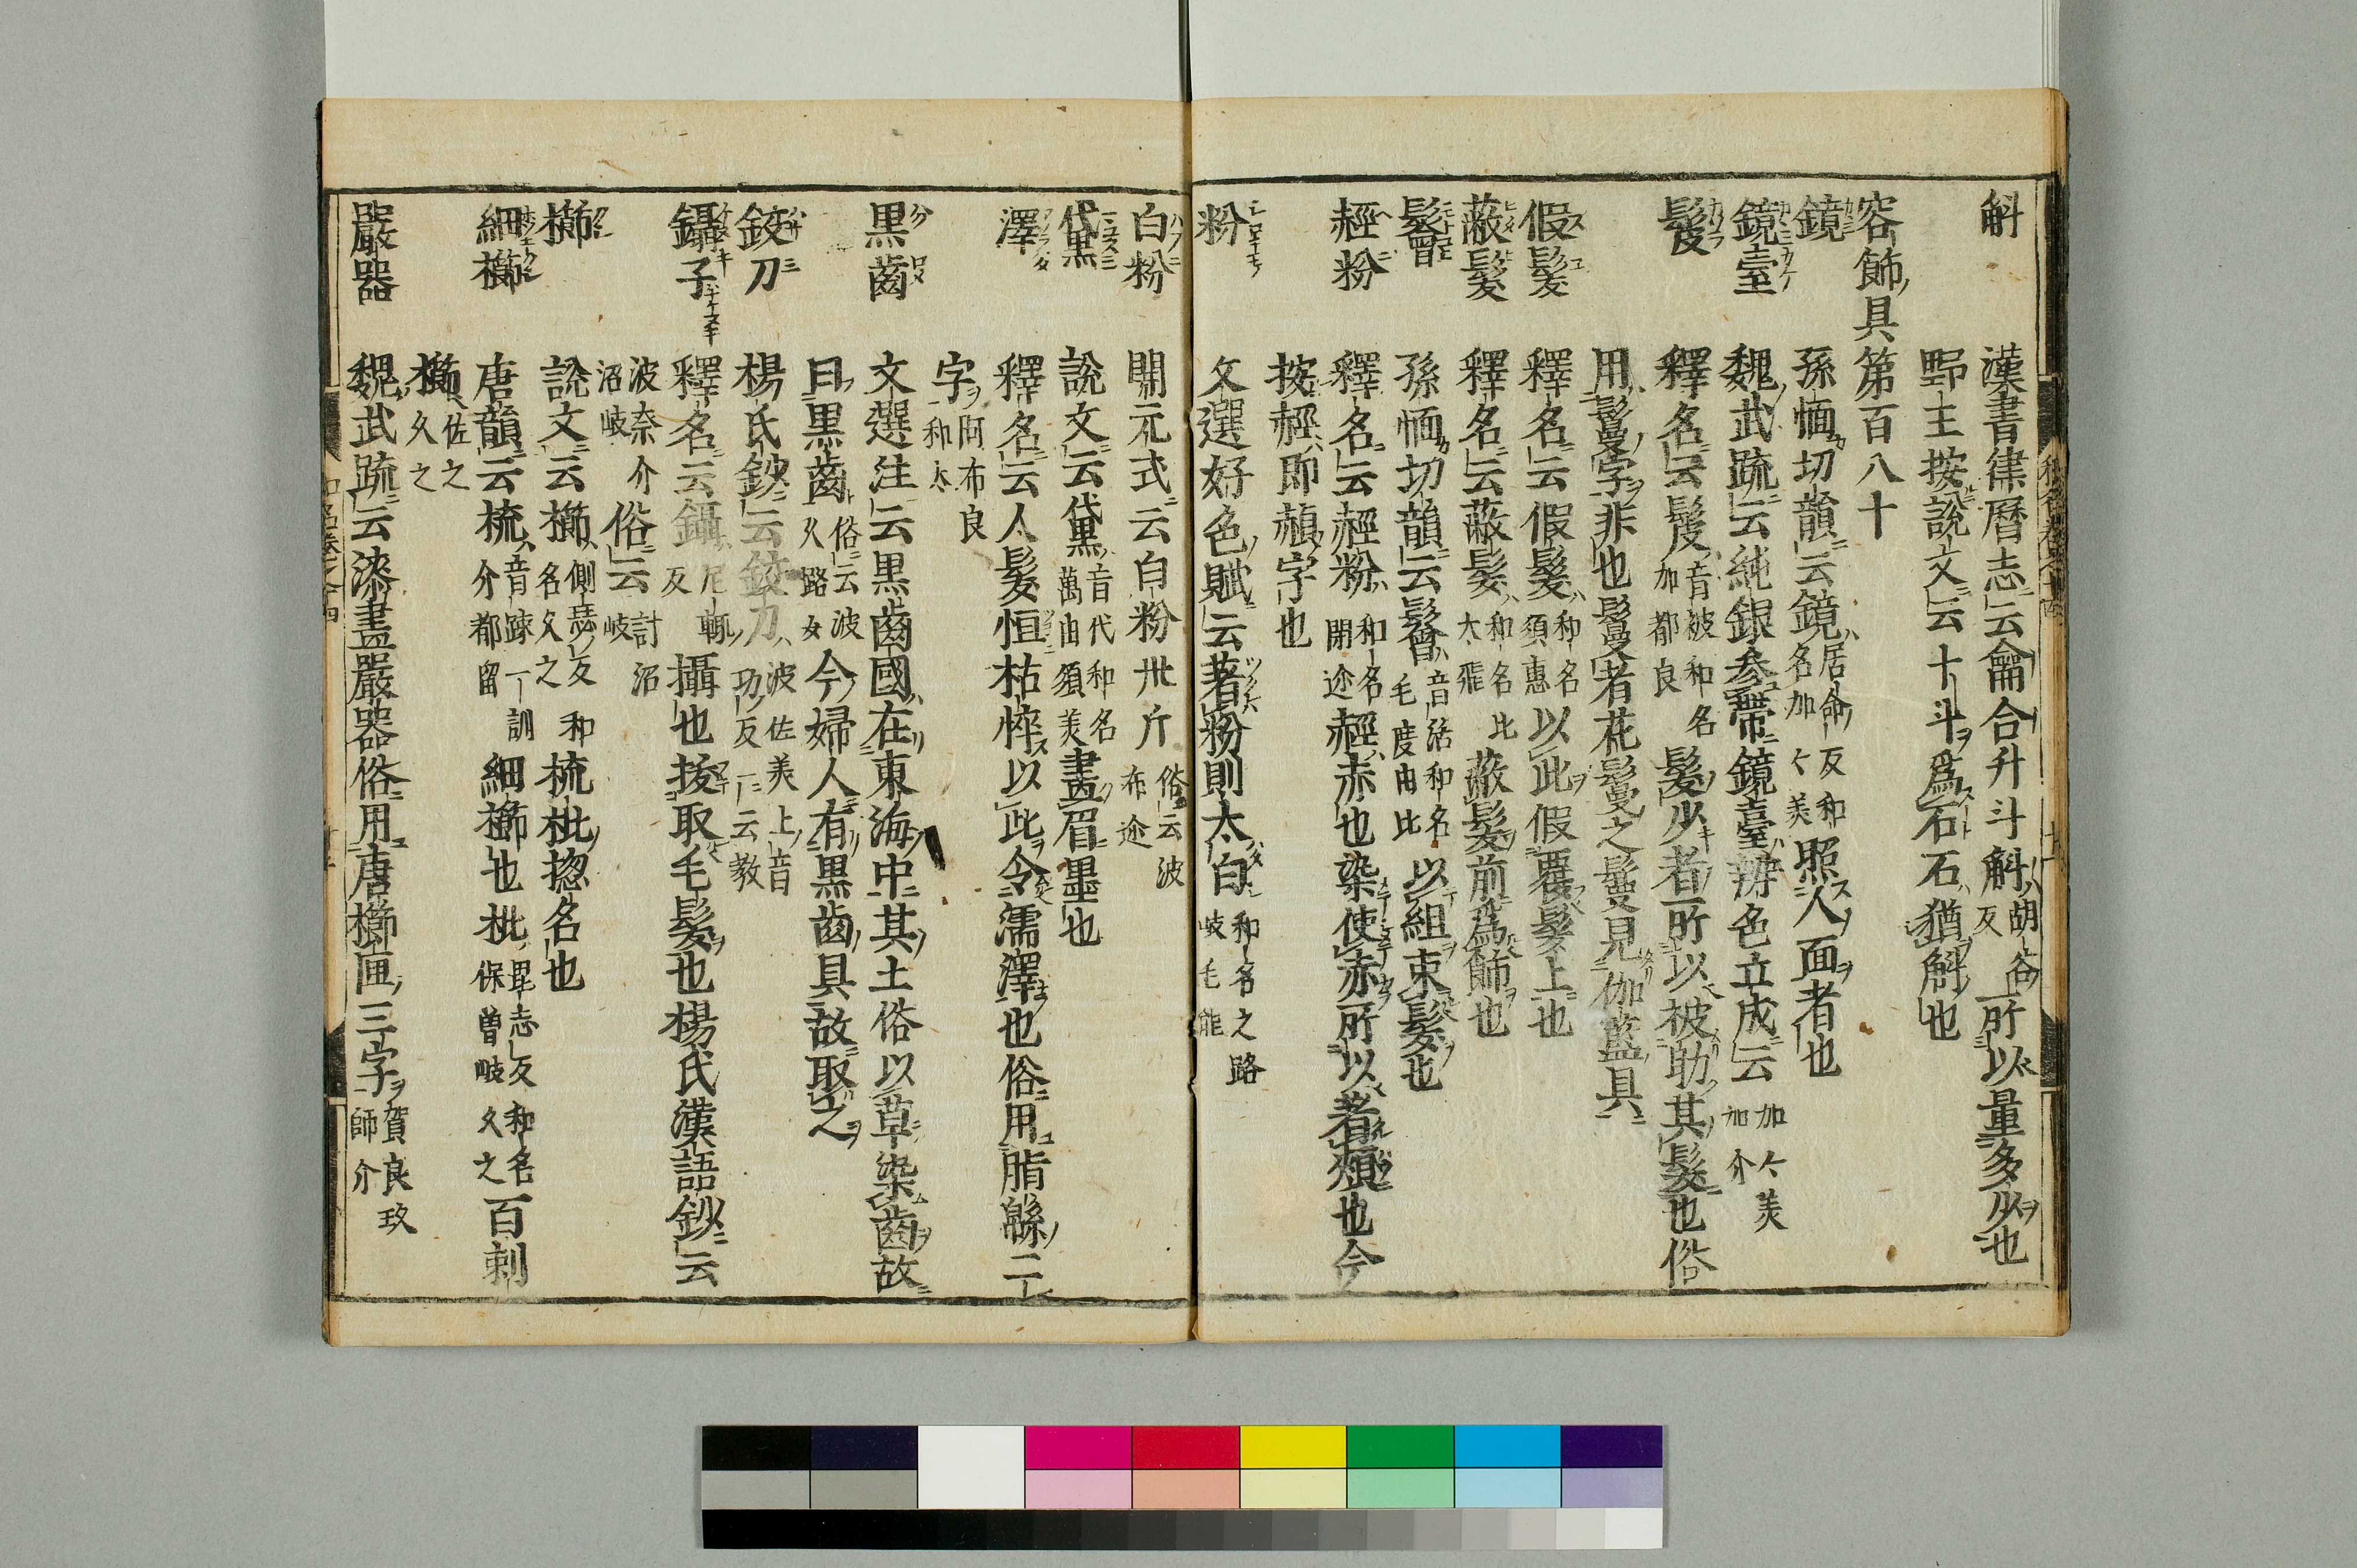 斛 漢書律曆志云龠合升斗斛胡谷反所以量多少也
野王按說文云十斗爲石石猶斛也
容飾具第百八十
鏡 孫愐切韻云鏡居命反和名加々美照人面者也
鏡臺 魏武疏云純銀參帶鏡臺辨色立成云加々美加介
髲 釋名云髲音被和名加都良髮少者所以被助其髮也俗
用鬘字非也鬘者花鬘之鬘見伽藍具
假髮 釋名云假髮和名須惠以此假覆髮上也
蔽髮 釋名云蔽髮和名比太飛蔽髮前爲飾也
䯤 孫愐切韻云䯤音活和名毛度由比以組束髮也
䞓粉 釋名云䞓粉和名閇迩䞓赤也染使赤所以著頰也今
按䞓即赬字也
粉 文選好色賦云著粉則太白和名之路岐毛能
白粉 開元式云白粉卅斤俗云波布迩
黛 說文云黛音代和名萬由須美畫眉墨也
澤 釋名云人髮恒枯悴以此令濡澤也俗用脂緜二
字阿布良和太
黑齒 文選注云黑齒國在東海中其土俗以草染齒故
曰黑齒俗云波久路女今婦人有黑齒具故取之
鉸刀 楊氏鈔云鉸刀波佐美上音功反一云教
鑷子 釋名云鑷尼輒反攝也拔取毛髮也楊氏漢語鈔云
波奈介沼岐俗云計沼岐
櫛 說文云櫛側瑟反和名久之梳枇惣名也
細櫛 唐韻云梳音踈一訓介都留細櫛也枇毘志反和名保曽岐久之百刺
櫛佐之久之
嚴器 魏武疏云漆畫嚴器俗用唐櫛匣三字賀良玖師介